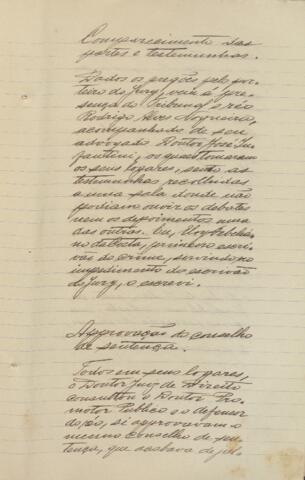 Comparecimento das
partes e testemunhas.
Dados os pregões pelo por-
teiro do Jury, veiu á pre-
sença do Tribunal o réo
Rodrigo Alves Nogueira,
acompanhado de seu
advogado Doutor José In-
fantini, os quaes tomaram
os seus logares, sendo as
testemunhas recolhidas
a uma sala donde não
podiam ouvir os debates
nem os depoimentos umas
das outras. Eu,
no da Costa, primeiro escri-
vão do crime, servindo no
impedimento do escrivão
do Jury, o escrevi.
Approvação do conselho
de sentença.
Todos em seus logares,
o Doutor Juiz de Direito
consultou o Doutor Pro-
motor Publico e o defensor
do réo, si approvavam o
mesmo Conselho de sen-
tença, que acabava de jul-